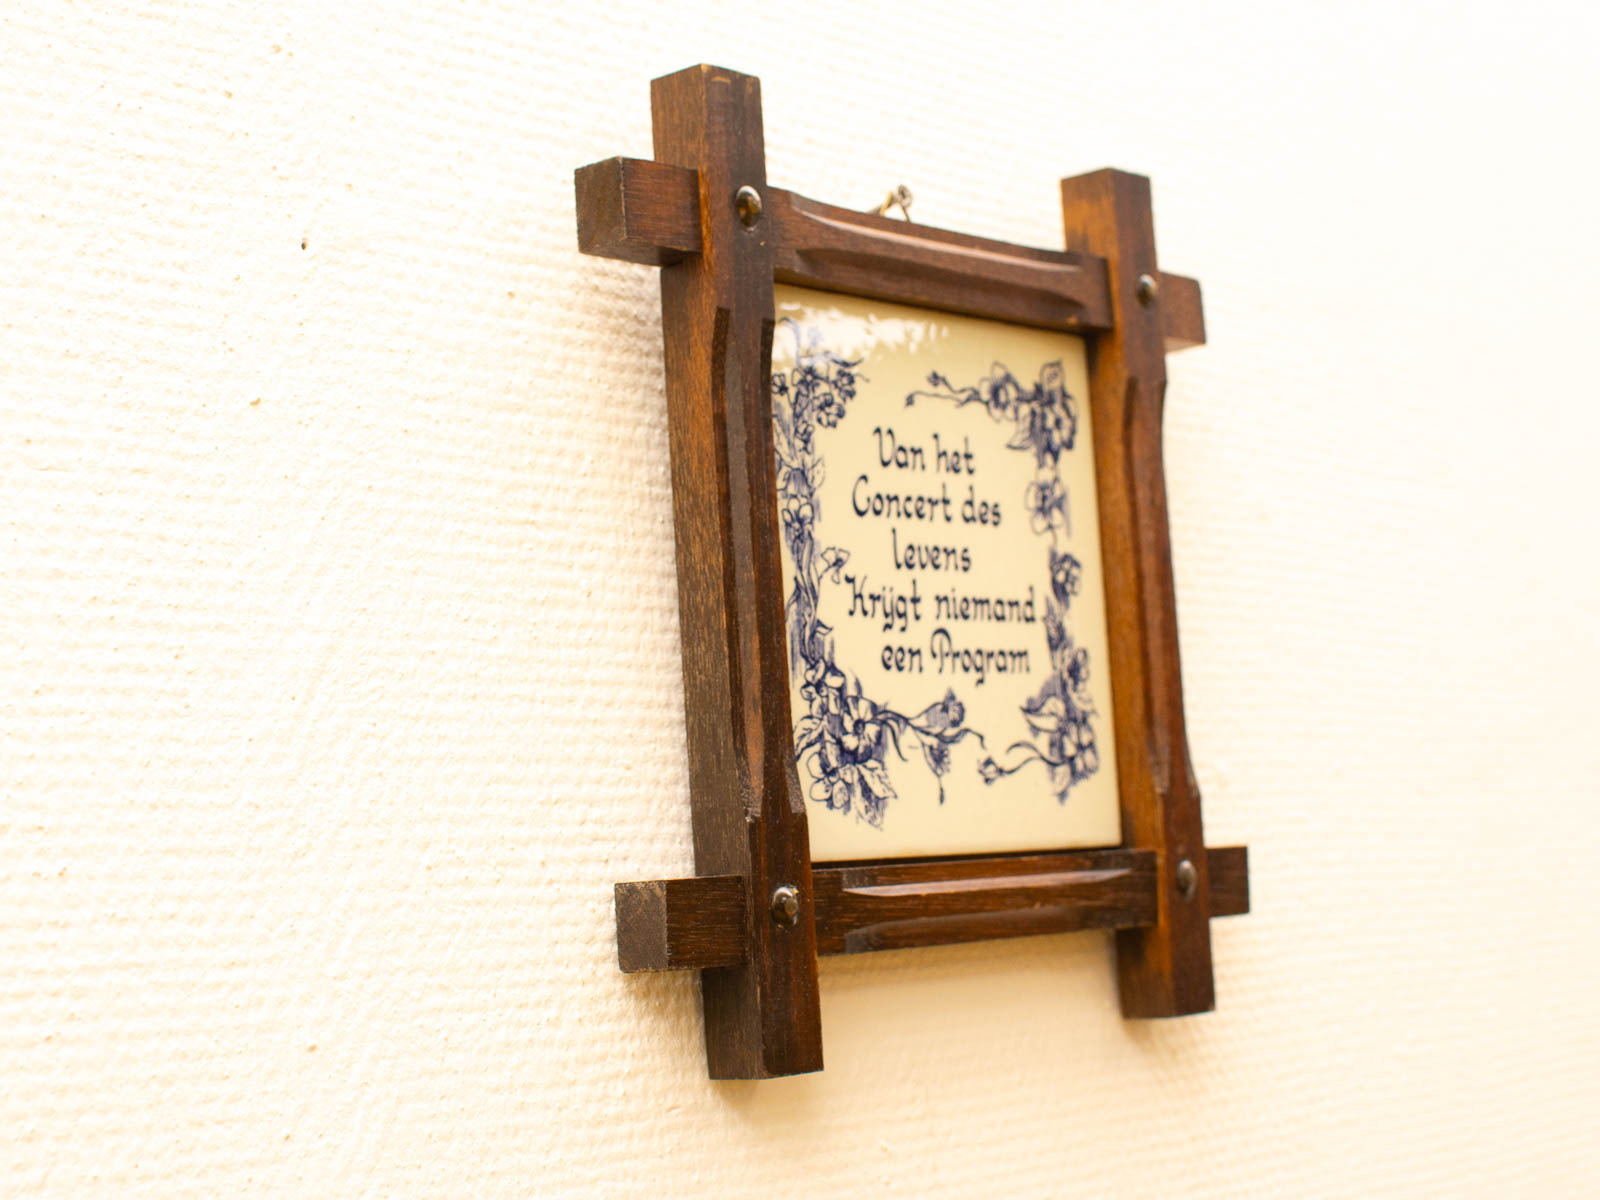 Van het
Concert des
levens
Krijgt niemand
een Program